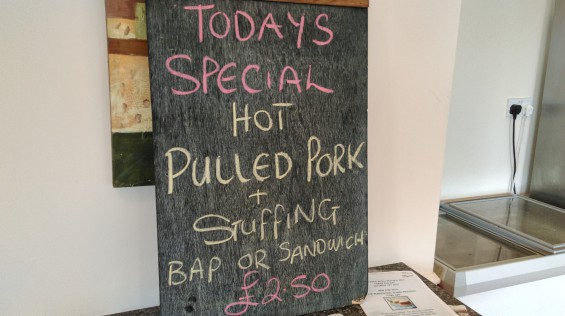 TODAYS
SPECIAL
HOT
PULLED PORK
+
STUFFING
BAP OR SANDWICH
£2.50